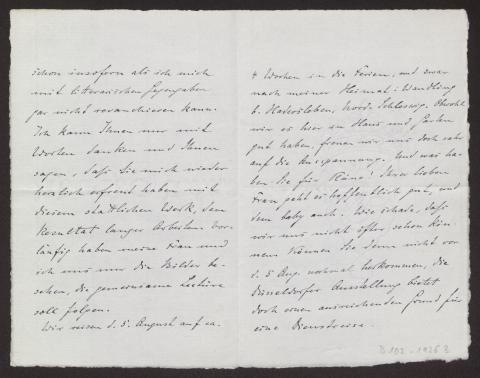 schon insofern als ich mich
mit litterarischen Gegengaben
gar nicht revanchieren kann.
Ich kann Ihnen nur mit
Worten danken und Ihnen
sagen, daß Sie mich wieder
herzlich erfreut haben mit
diesem stattlichen Werk, dem
Resultat langer Arbeiten. Vor-
läufig haben meine Frau und
ich uns nur die Bilder be-
sehen, die gemeinsame Lektüre
soll folgen.
Wir reisen d. 5. August auf ca.
4 Wochen in die Ferien, und zwar
nach meiner Heimat:
b. Hadersleben, Nords Schleswig. Obwohl
wir es hier in Haus und Garten
gut haben, freuen wir uns doch sehr
auf die Ausspannung. Und was ha-
ben Sie für Pläne? Ihrer lieben
Frau geht es hoffentlich gut, und
dem baby auch. Wie schade, daß
wir uns nicht öfter sehen kön-
nen. Können Sie denn nicht vor
d. 5 Aug. nochmal herkommen, die
Düsseldorfer Ausstellung bietet
doch einen ausreichenden Grund für
eine Dienstreise.
D 102 - 1926 2